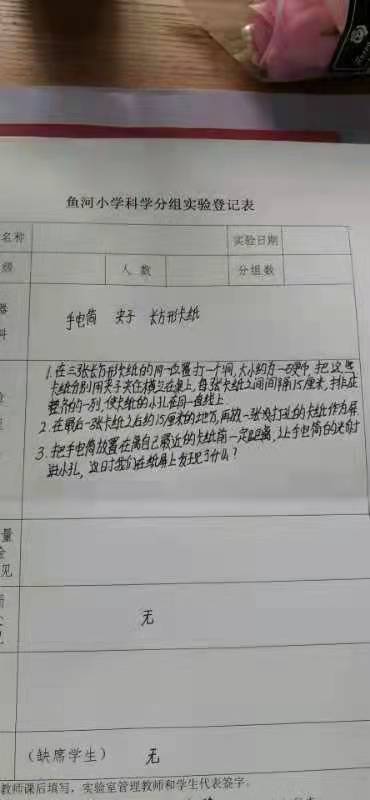 鱼河小学科学分组实验登记表
名称
实验日期
级
人数
分组数
器
料
手电筒 夹子 长方形卡纸
1.在三张长方形卡纸的同一位置打一个洞,大小约为一硬币,把这些
卡纸分别用夹子夹住横立在桌上,每张卡纸之间间隔15厘米,排成
整齐的一列,使卡纸的小孔在同一直线上
2.在最后一张卡纸之后约15厘米的地方,再放一张没打孔的卡纸作为屏
3.把手电筒放置在离自己最近的卡纸前一定距离,让手电筒的光射
进小孔,这时我们在纸屏上发现了什么?
量
见
无
(缺席学生) 无
教师课后填写,实验室管理教师和学生代表签字。